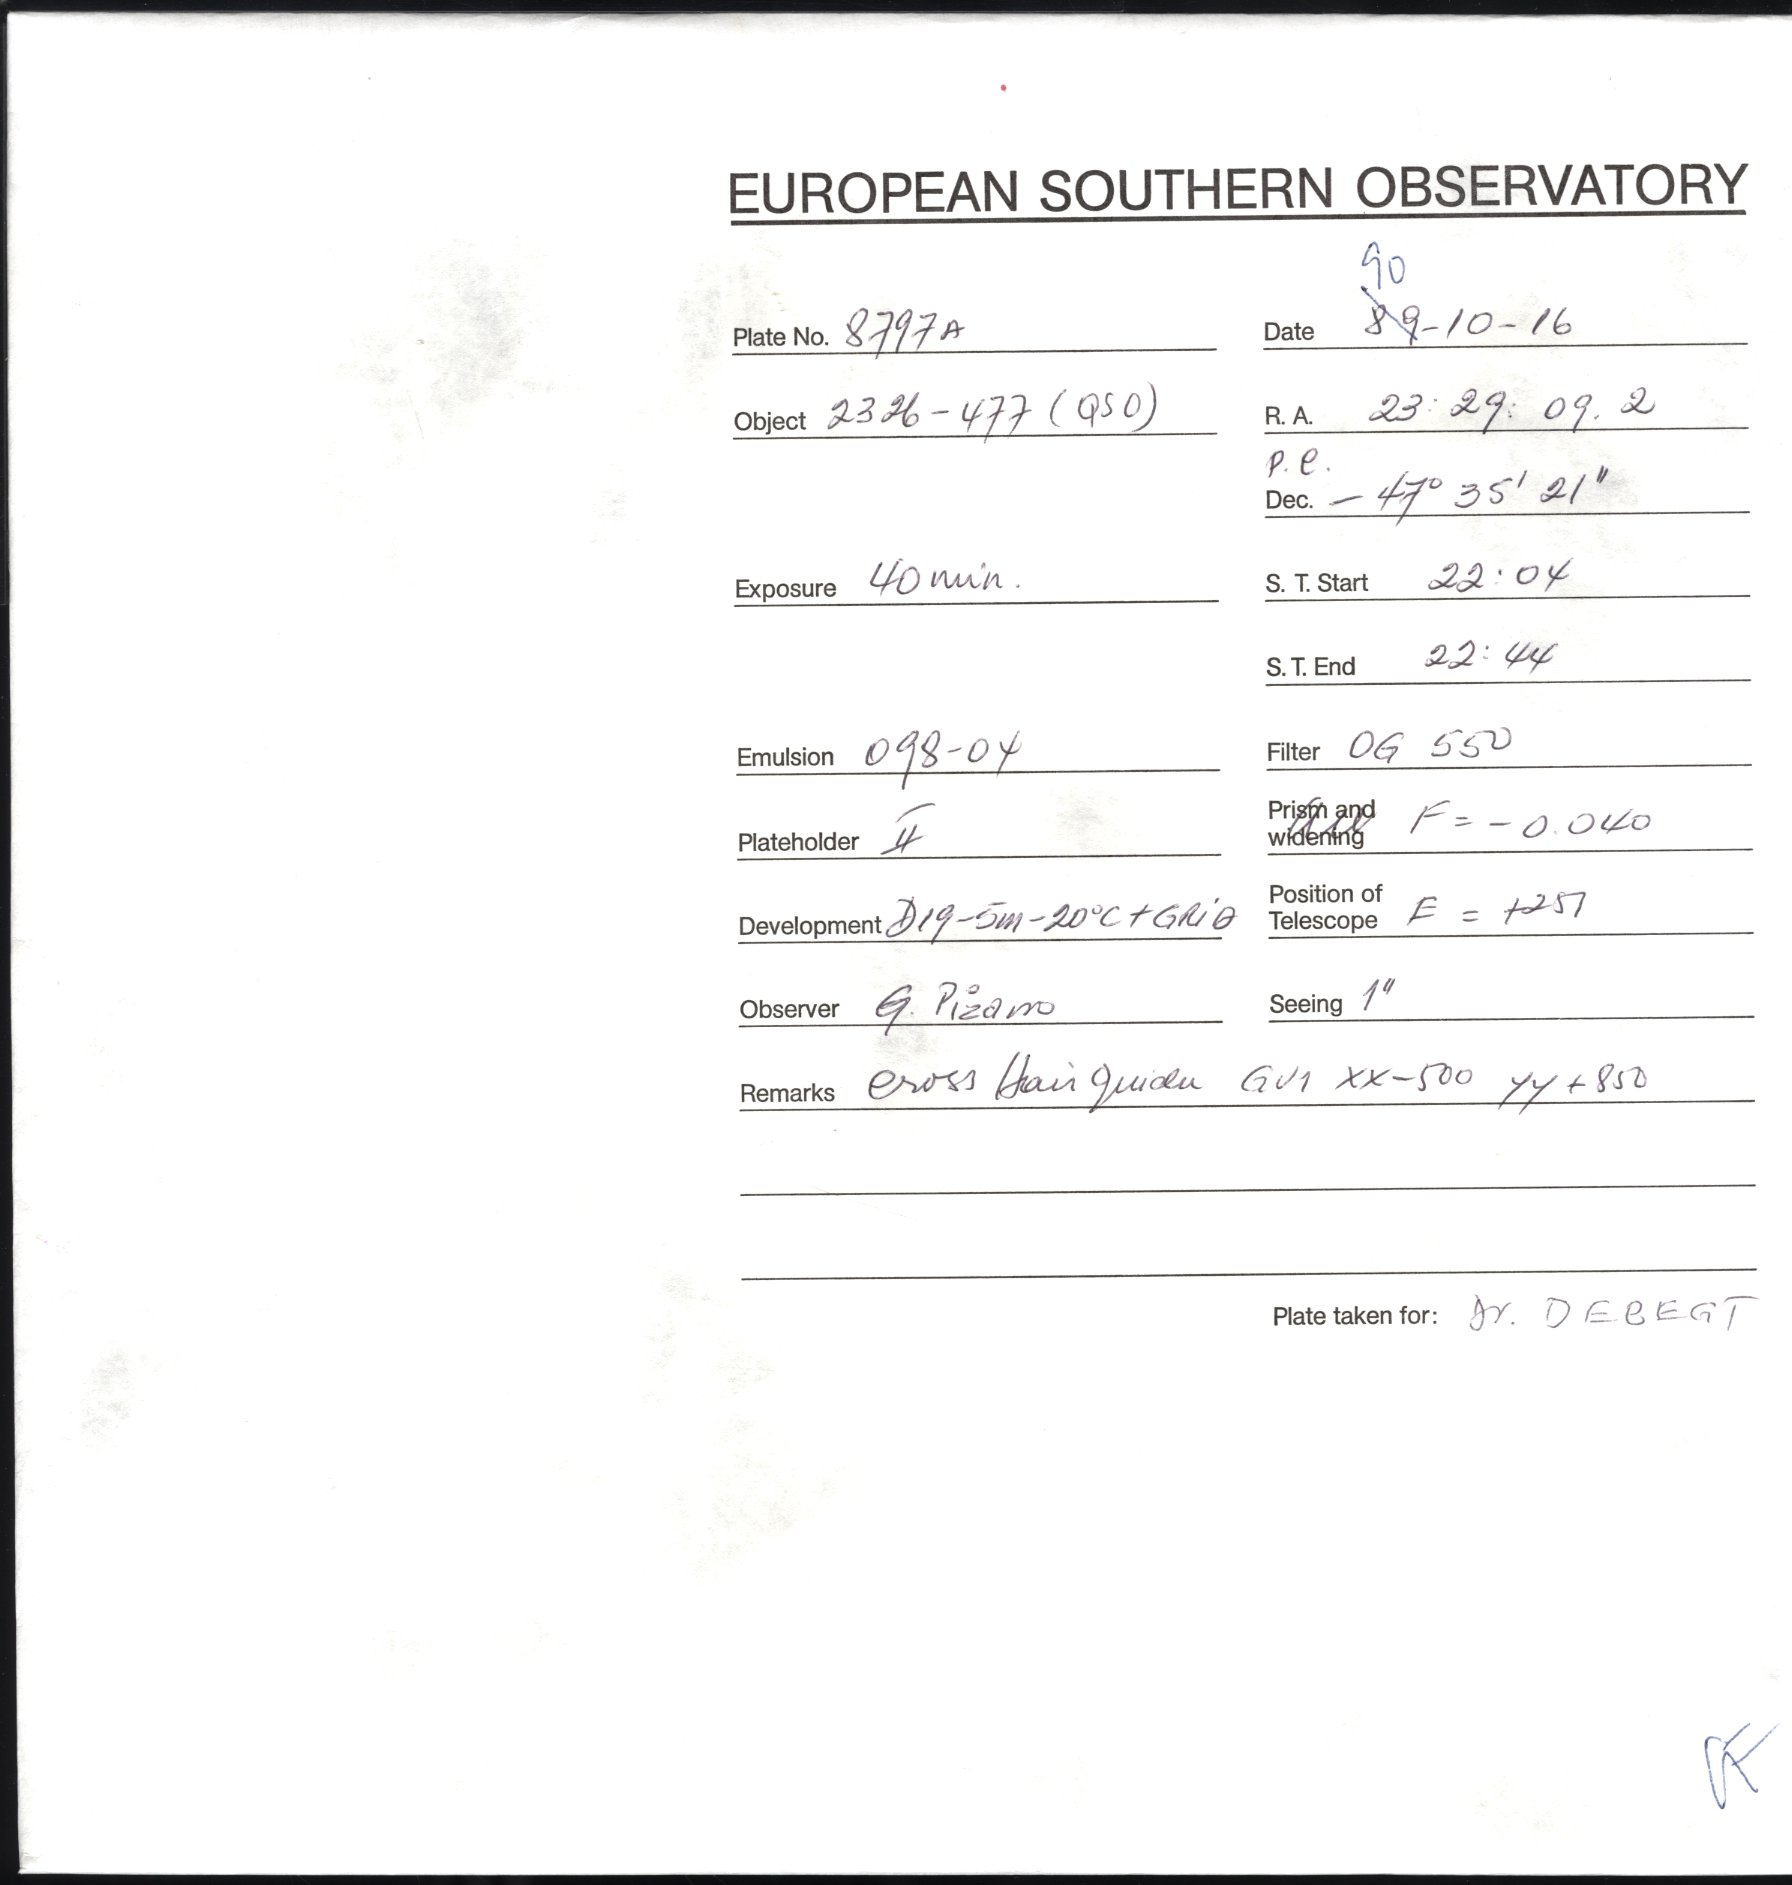 EUROPEAN SOUTHERN OBSERVATORY
90
Plate No. 8797A Date 89-10-16
Object 2326-477 (QSO) R. A. 23:29:09.2
P.e.
Dec. -47° 35' 21"
Exposure 40 min. S. T. Start 22:04
S. T. End 22:44
Emulsion 098-04 Filter OG 550
Plateholder II Prism and widening F = -0.040
Development D19-5m-20°C + GRID Position of Telescope E = +251
Observer G. Pizarro Seeing 1"
Remarks cross Hair guider GV1 XX-500 YY+850
Plate taken for: Dr. DEBEGT